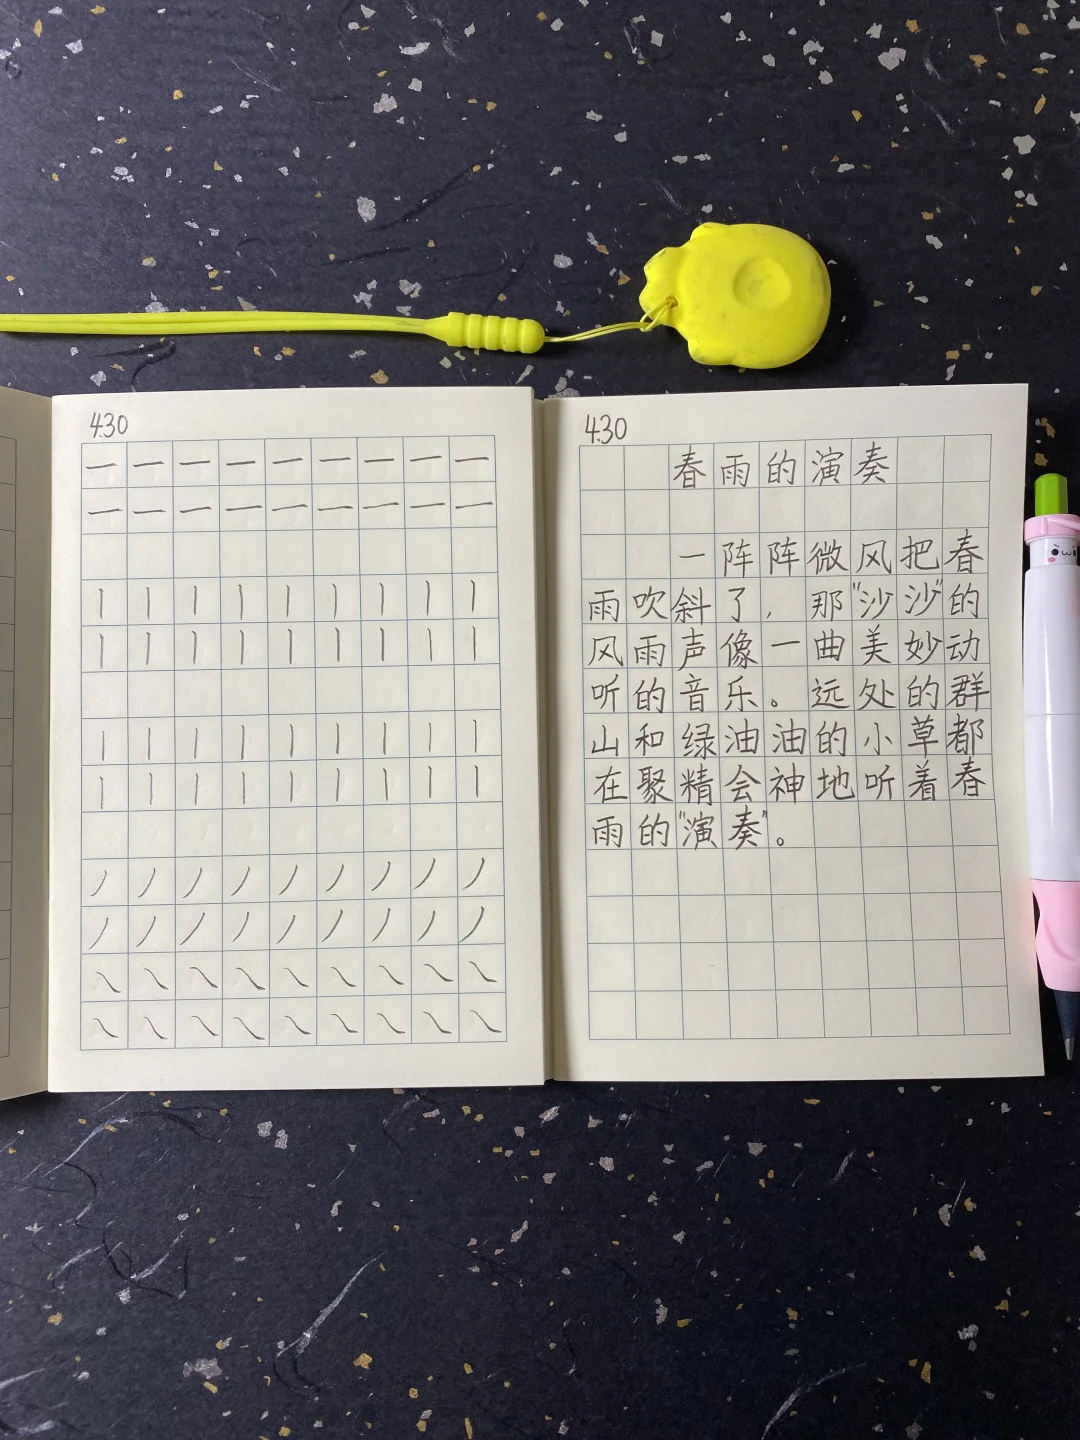 4.30
一一一一一一一一一
一一一一一一一一一
丨丨丨丨丨丨丨丨丨
丨丨丨丨丨丨丨丨丨
丨丨丨丨丨丨丨丨丨
丨丨丨丨丨丨丨丨丨
丿丿丿丿丿丿丿丿丿
丿丿丿丿丿丿丿丿丿
㇏㇏㇏㇏㇏㇏㇏㇏㇏
㇏㇏㇏㇏㇏㇏㇏㇏㇏
4.30
春雨的演奏
一阵阵微风把春
雨吹斜了，那“沙沙”的
风雨声像一曲美妙动
听的音乐。远处的群
山和绿油油的小草都
在聚精会神地听着春
雨的“演奏”。